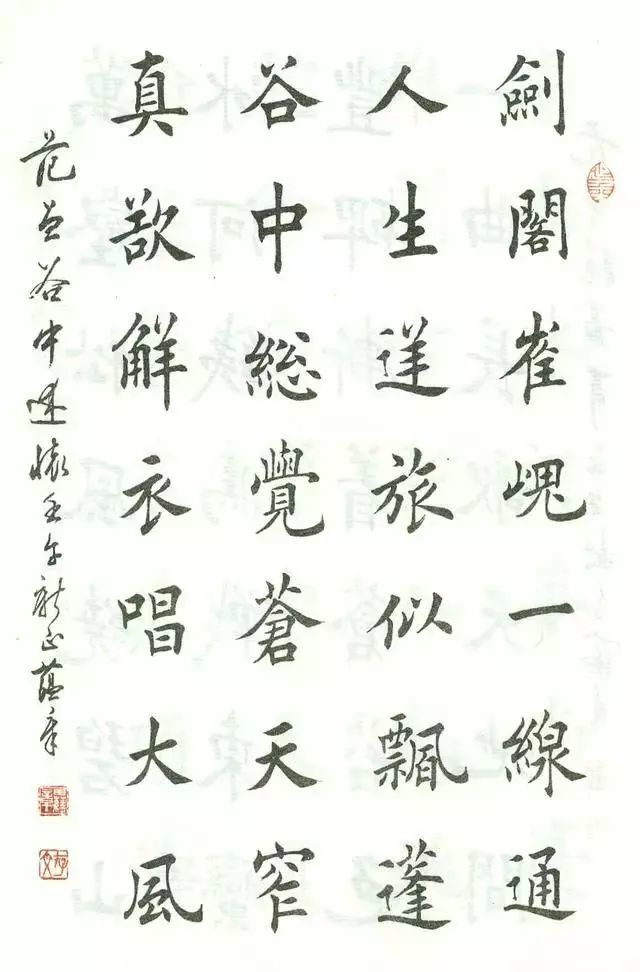 劍閣崔嵬一線通
人生逆旅似飄蓬
谷中総覺蒼天窄
真欲解衣唱大風
谷中述懷壬午新正